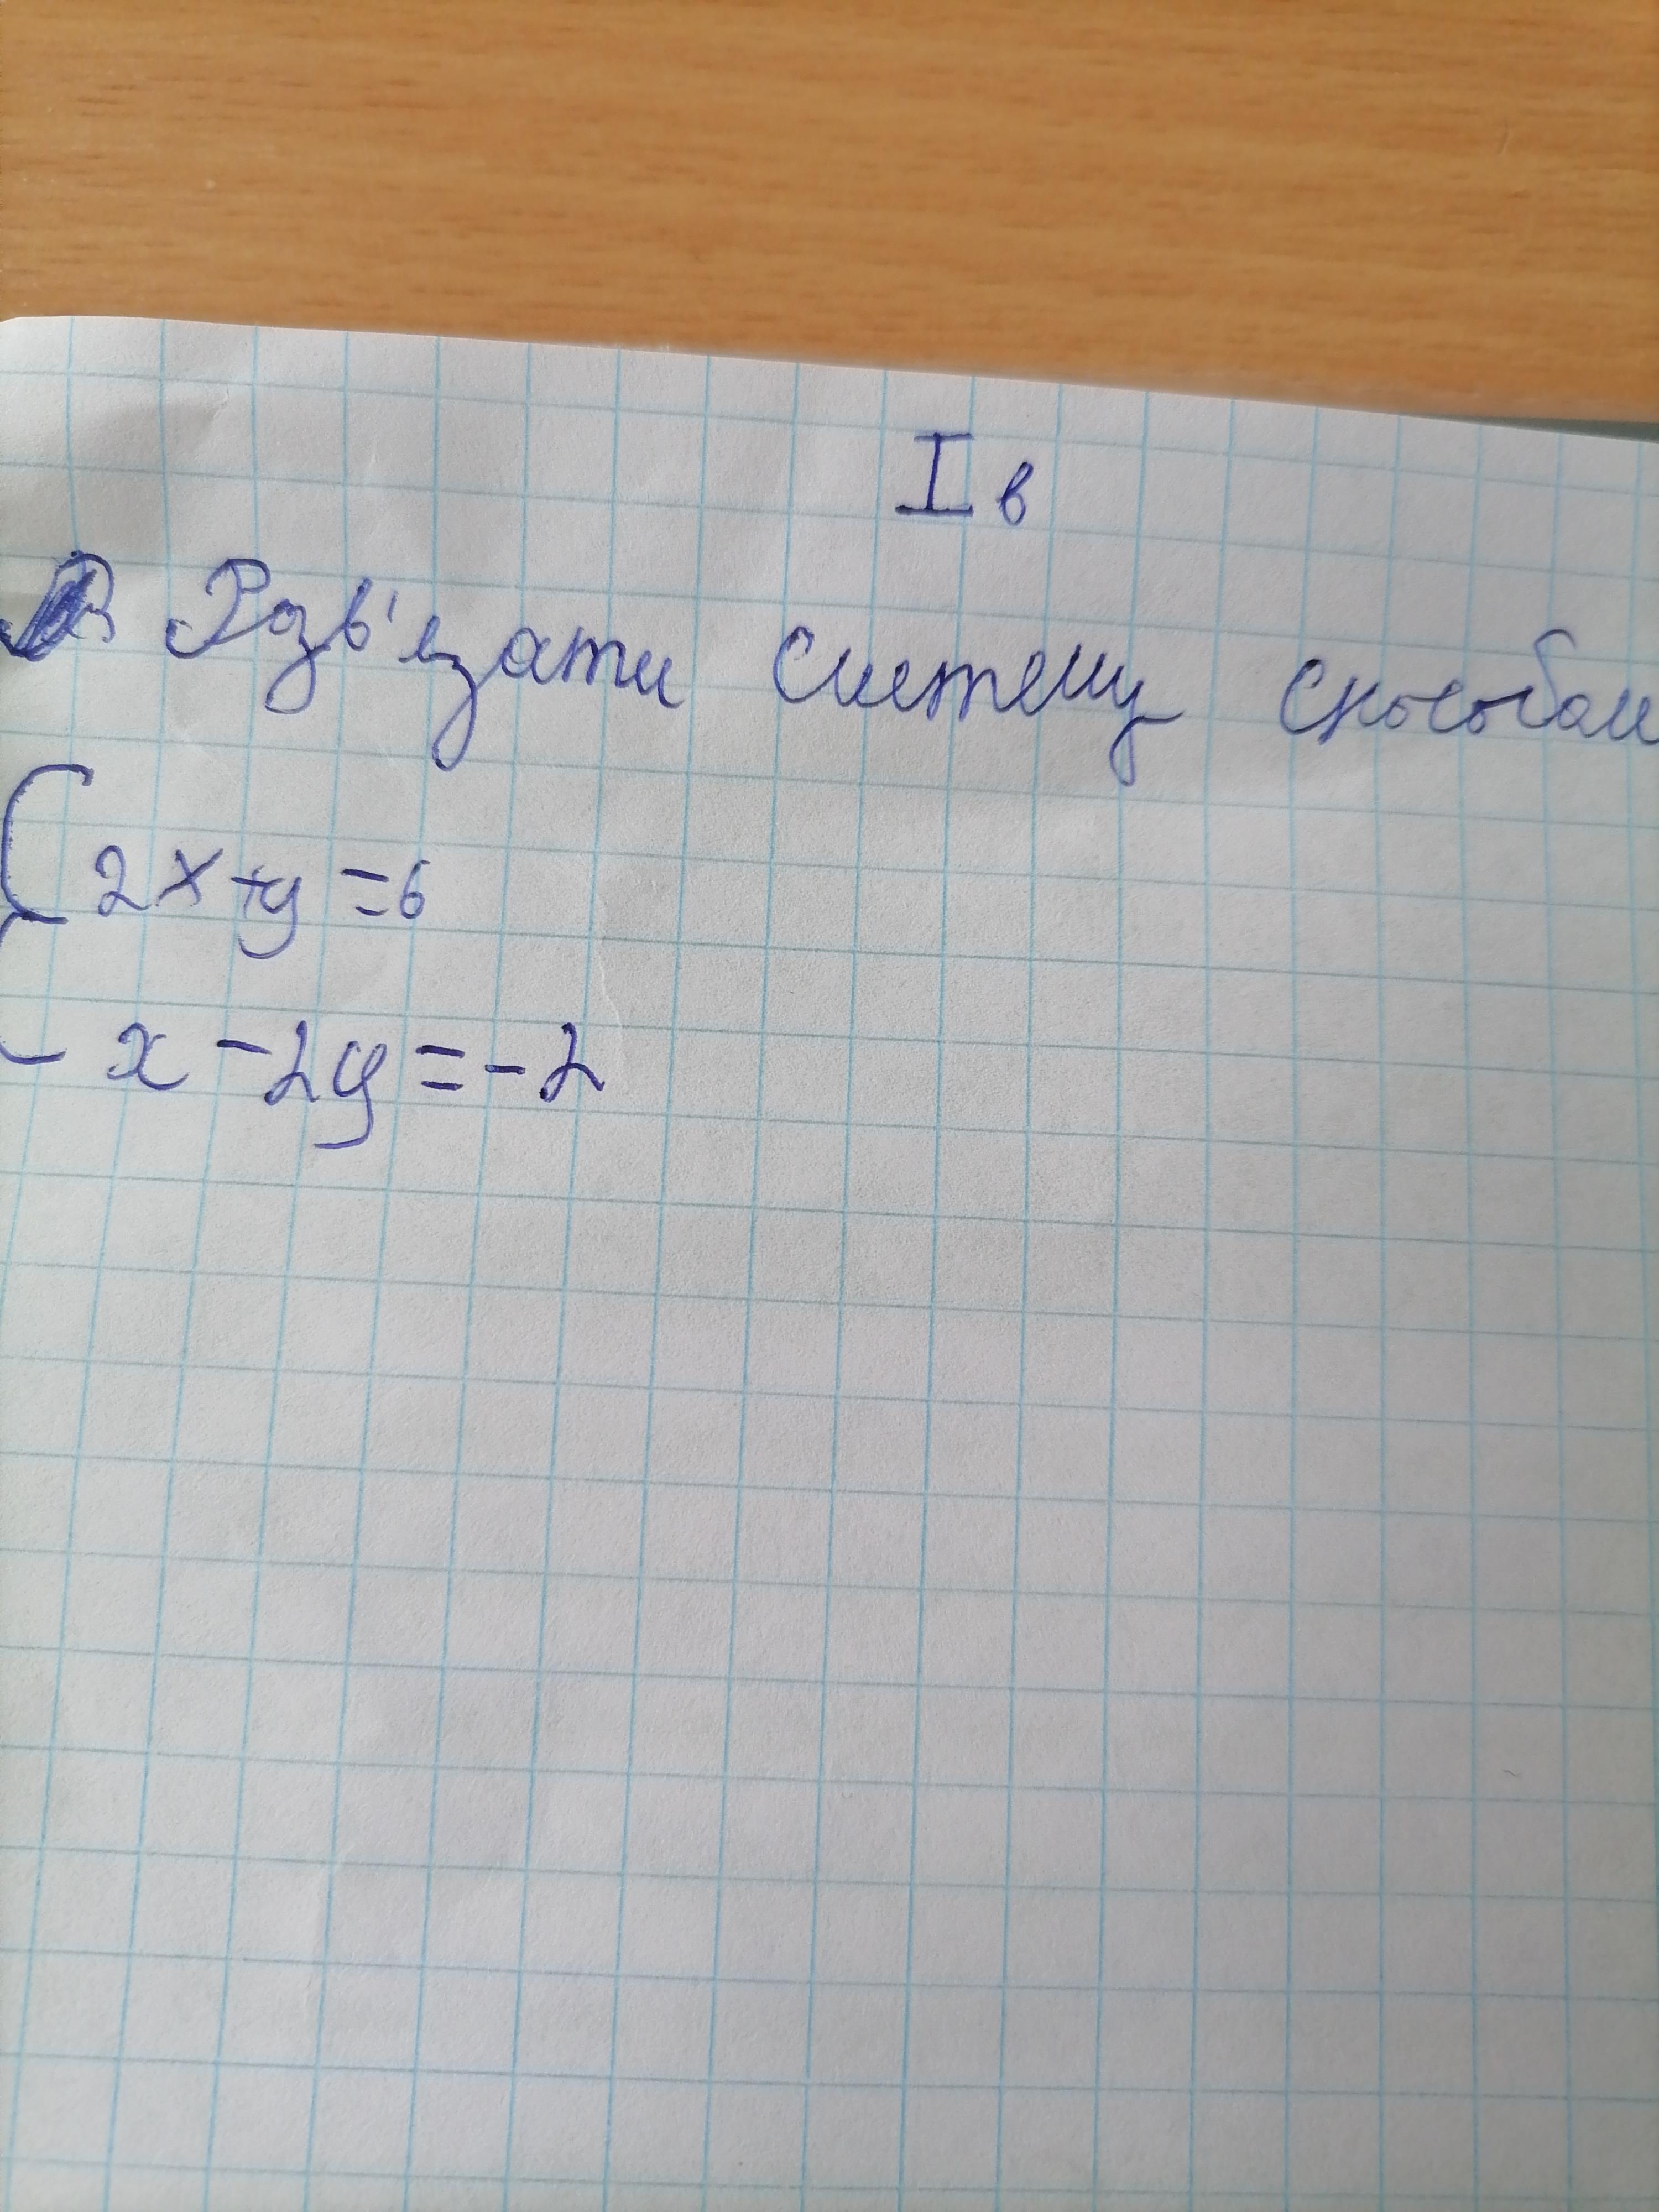 I в
Розв'язати систему способом
2x+y=6
x-2y=-2